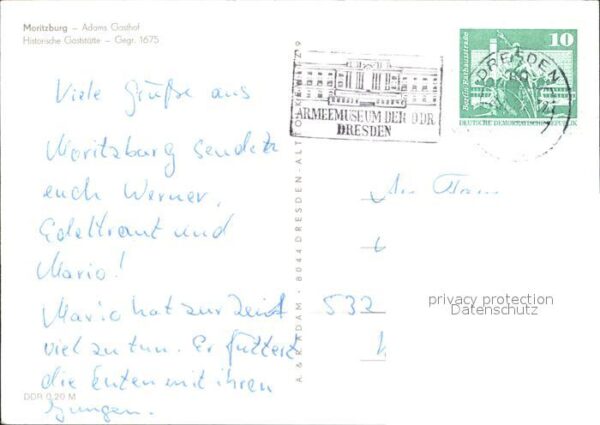 Moritzburg – Adams Gasthof
Historische Gaststätte – Gegr. 1675
Viele Grüße aus
Moritzburg senden
euch Werner,
Edeltraut und
Mario!
Mario hat zur Zeit
viel zu tun. Er füttert
die Enten mit ihren
Jungen.
DDR 0,20 M
A. & R. ADAM · 8044 DRESDEN-ALTTOLKEWITZ 9
ARMEEMUSEUM DER DDR
DRESDEN
DRESDEN
10
Berlin, Rathausstraße
DEUTSCHE DEMOKRATISCHE REPUBLIK
An Fam.
532
privacy protection
Datenschutz